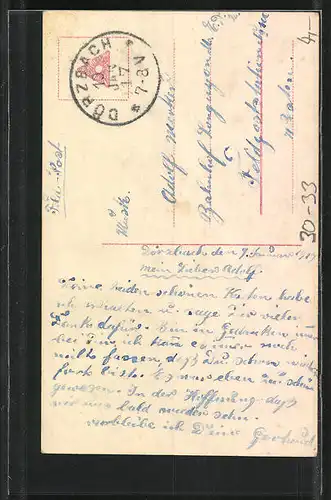 DÖRZBACH
10 JAN 17
7-8 V
4,-
30-33
Feld-Post
Musk.
Adolf
Bahnhof
Feldpoststation
Dörzbach den 9. Januar 1917
mein Lieber Adolf.
Deine beiden schönen Karten habe
ich erhalten u. sage dir vielen
Dank dafür. Bin in Gedanken immer
bei Dir ich kann es immer noch
nicht fassen, daß Du schon wieder
fort bist. Es war eben zu schön
gewesen. In der Hoffnung daß
wir uns bald wieder sehn
verbleibe ich Deine